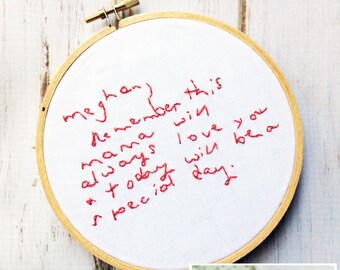 meghan,
Remember this
mama will
always love you
+ today will be a
special day.